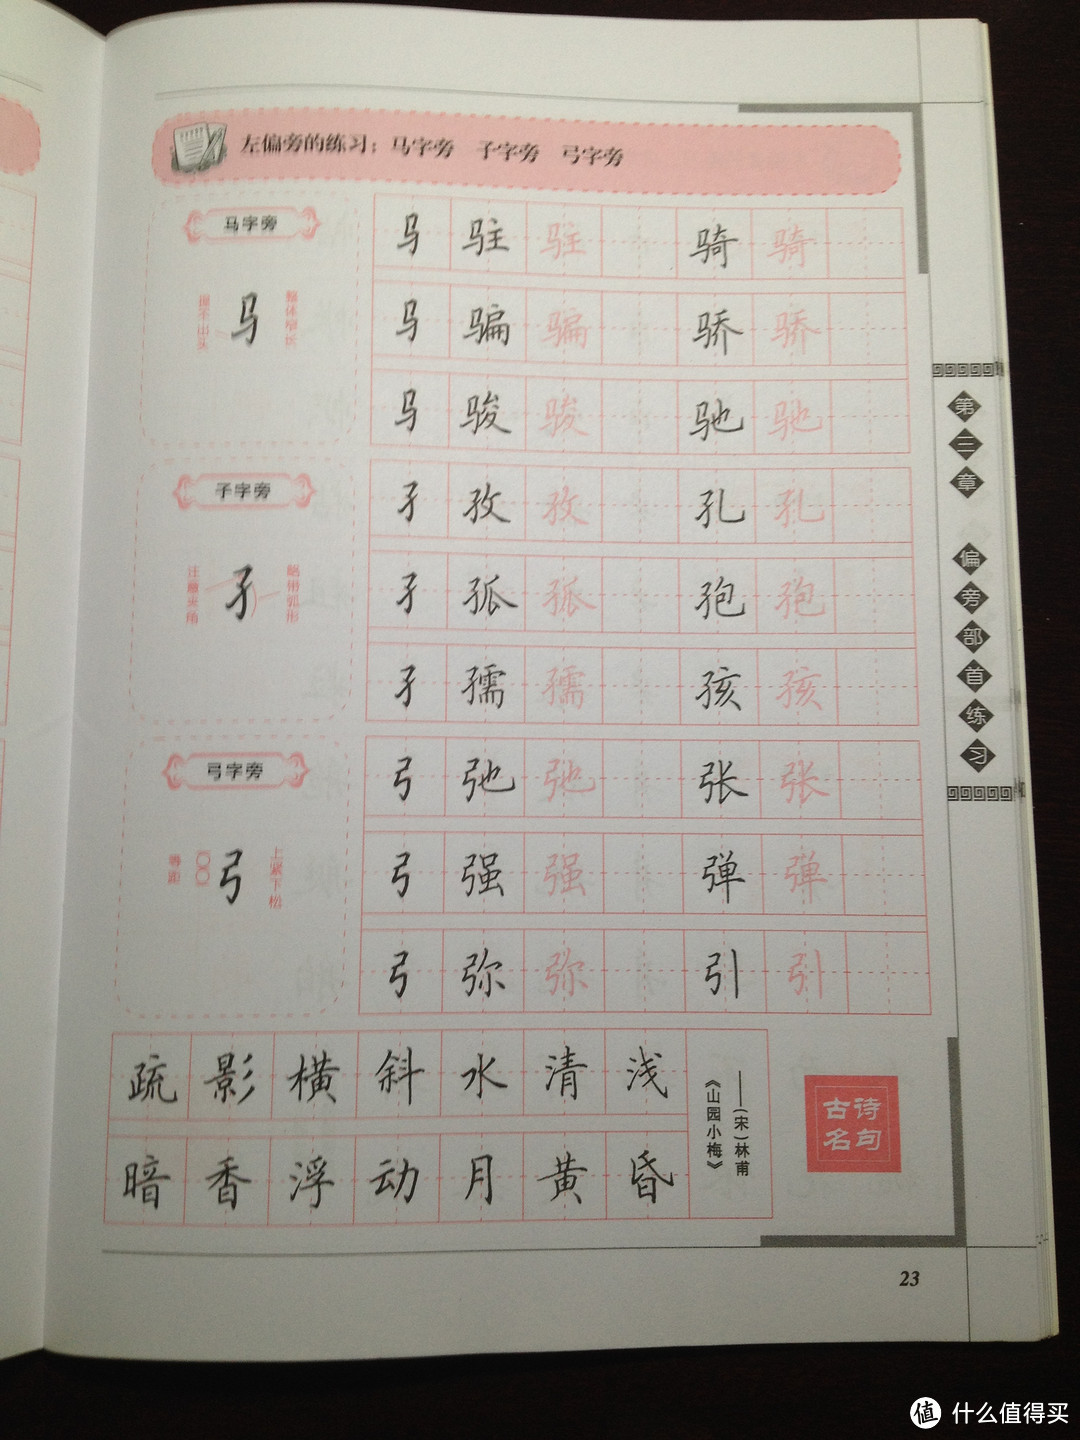 左偏旁的练习：马字旁 子字旁 弓字旁
马字旁
提不出头
马
整体窄长
马 驻 驻 骑 骑
马 骗 骗 骄 骄
马 骏 骏 驰 驰
子字旁
注意夹角
孑
略带弧形
孑 孜 孜 孔 孔
孑 孤 孤 孢 孢
孑 孺 孺 孩 孩
弓字旁
等距
弓
上紧下松
弓 弛 弛 张 张
弓 强 强 弹 弹
弓 弥 弥 引 引
疏影横斜水清浅
暗香浮动月黄昏
——(宋)林甫
《山园小梅》
古诗
名句
第三章 偏旁部首练习
23
值 什么值得买